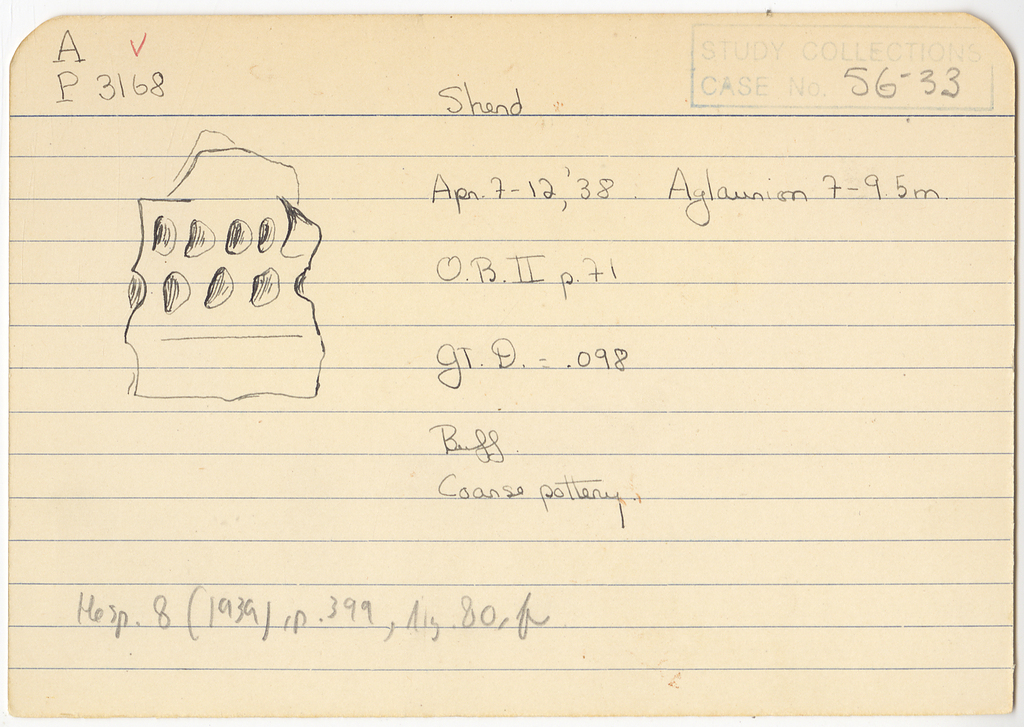 A
P 3168
STUDY COLLECTIONS
CASE No. 56-33
Sherd
Apr. 7-12, '38. Aglaurion 7-9.5m.
O.B. II p. 71
GT. D. = .098
Buff.
Coarse pottery.
Hesp. 8 (1939), p. 399, fig. 80,